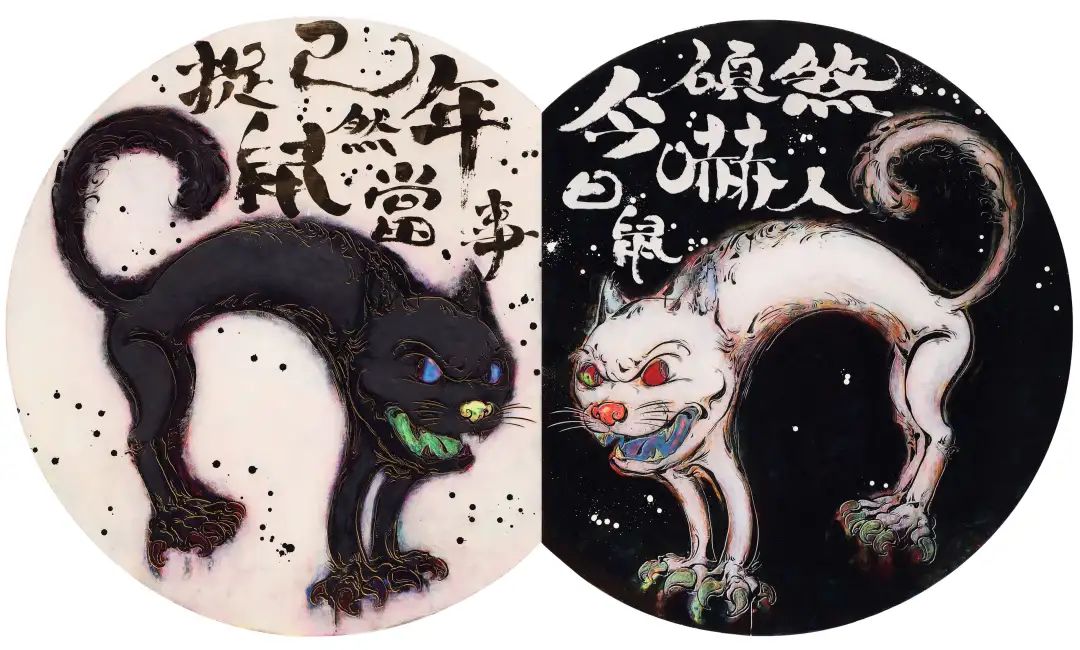 捉鼠已然當年事
今日碩鼠嚇煞人